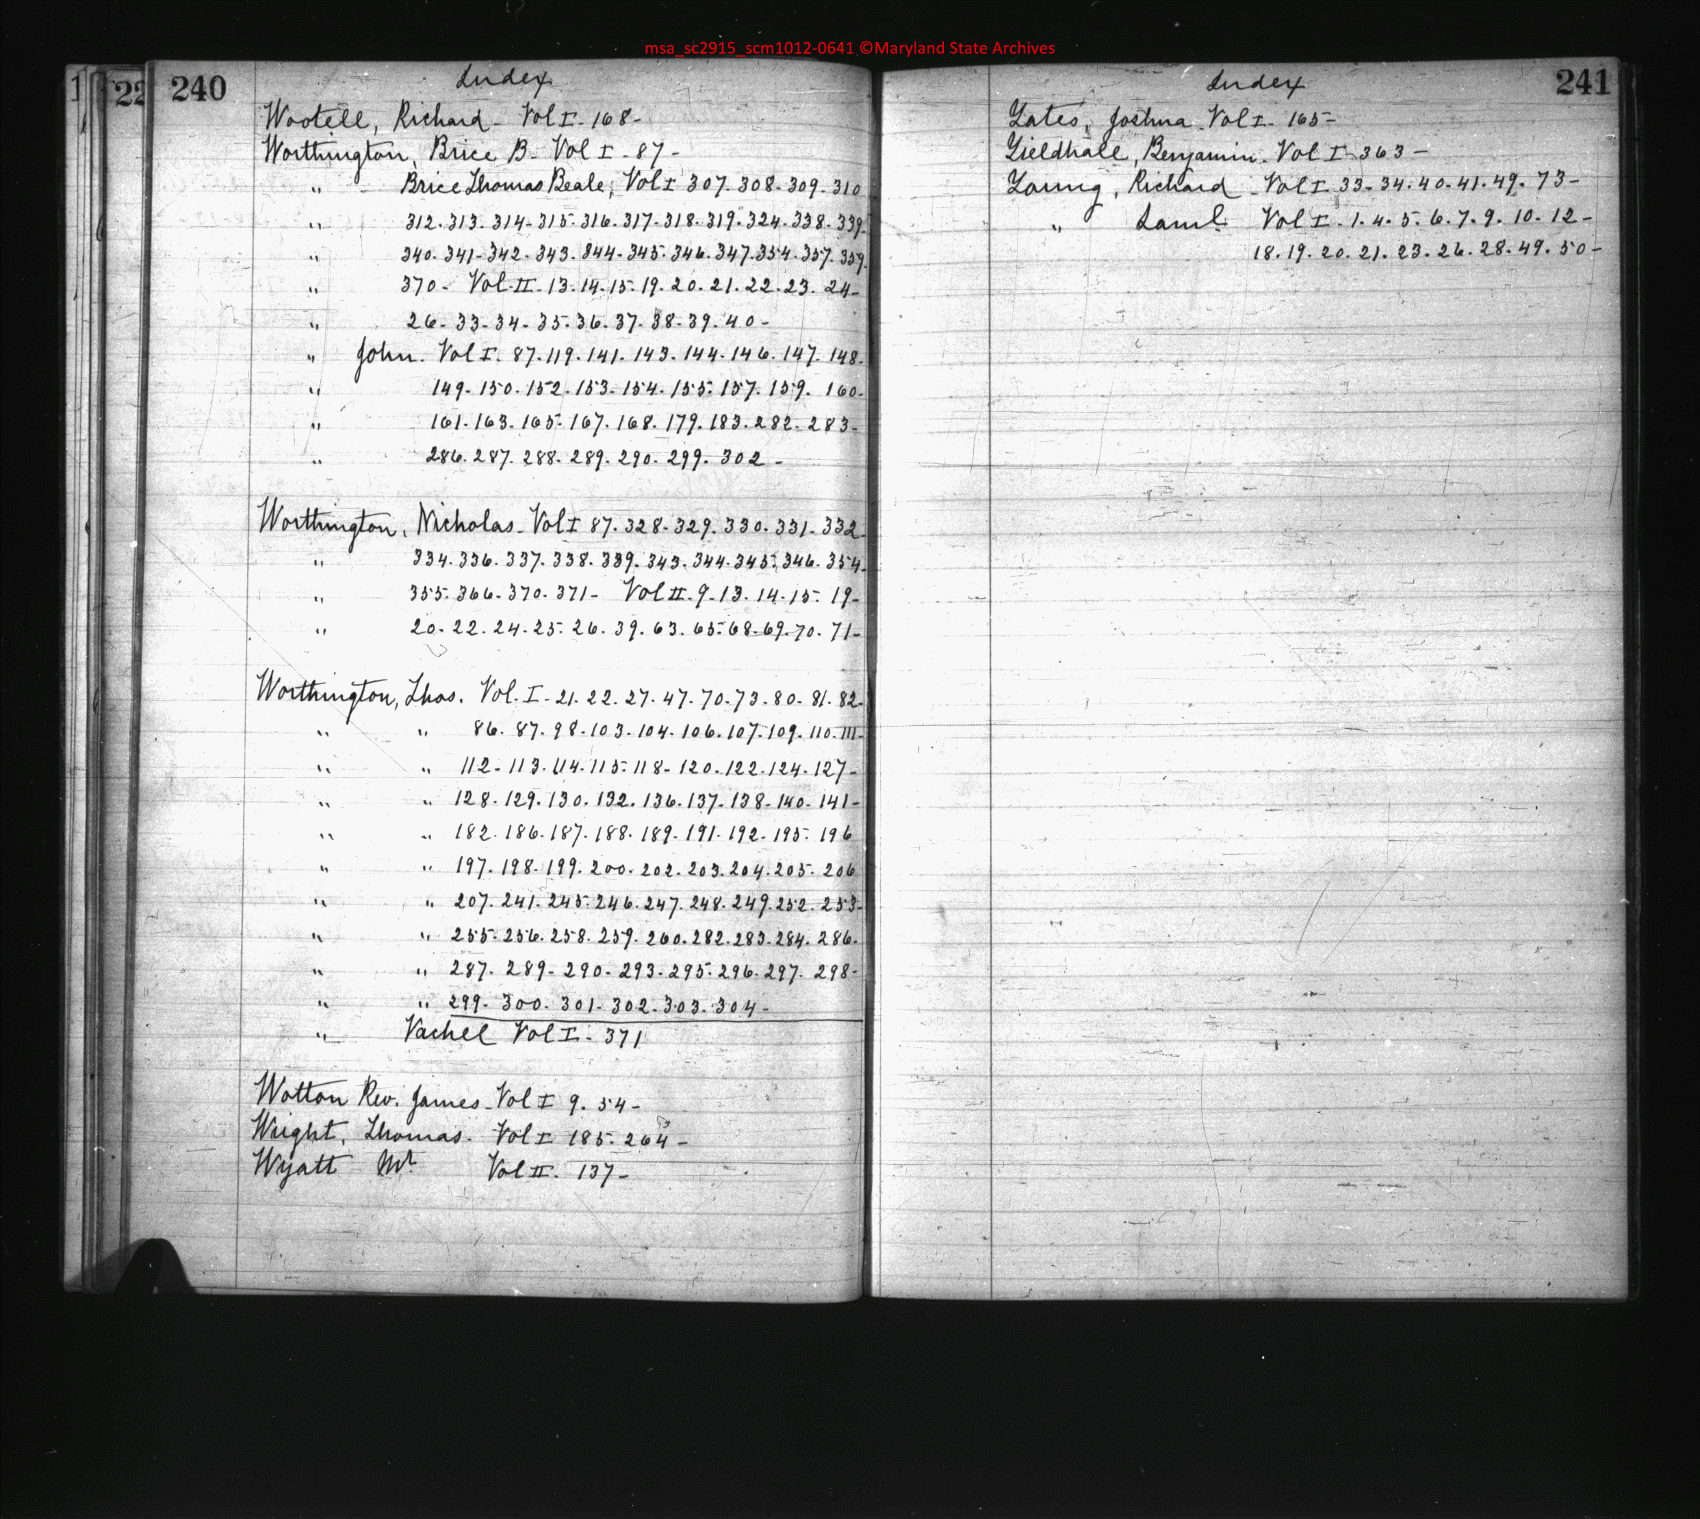 msa_sc2915_scm1012-0641 ©Maryland State Archives
1
22
240
Index
Wootell, Richard - Vol I - 168 -
Worthington, Brice B - Vol I - 87 -
" Brice Thomas Beale, Vol I 307. 308. 309. 310
" 312. 313. 314. 315. 316. 317. 318. 319. 324. 338. 339.
" 340. 341. 342. 343. 344. 345. 346. 347. 354. 357. 359.
" 370 - Vol II - 13. 14. 15. 19. 20. 21. 22. 23. 24 -
" 26. 33. 34. 35. 36. 37. 38. 39. 40 -
" John. Vol I. 87. 119. 141. 143. 144. 146. 147. 148.
" 149. 150. 152. 153. 154. 155. 157. 159. 160.
" 161. 163. 165. 167. 168. 179. 183. 282. 283 -
" 286. 287. 288. 289. 290. 299. 302 -
Worthington, Nicholas - Vol I 87. 328. 329. 330. 331. 332.
" 334. 336. 337. 338. 339. 343. 344. 345. 346. 354.
" 355. 366. 370. 371 - Vol II. 9. 13. 14. 15. 19 -
" 20. 22. 24. 25. 26. 39. 63. 65. 68. 69. 70. 71 -
Worthington, Thos. Vol. I - 21. 22. 27. 47. 70. 73. 80. 81. 82.
" " 86. 87. 98. 103. 104. 106. 107. 109. 110. 111 -
" " 112. 113. 114. 115. 118. 120. 122. 124. 127 -
" " 128. 129. 130. 132. 136. 137. 138. 140. 141 -
" " 182. 186. 187. 188. 189. 191. 192. 195. 196
" " 197. 198. 199. 200. 202. 203. 204. 205. 206
" " 207. 241. 245. 246. 247. 248. 249. 252. 253 -
" " 255. 256. 258. 259. 260. 282. 283. 284. 286.
" " 287. 289. 290. 293. 295. 296. 297. 298 -
" " 299. 300. 301. 302. 303. 304 -
" Vachel Vol I. 371
Wotton Rev. James - Vol I 9. 54 -
Wright, Thomas. Vol I 185. 264 -
Wyatt Mr Vol II. 137 -
241
Index
Yates, Joshua. Vol I - 165 -
Yieldhall, Benjamin. Vol I 363 -
Young, Richard - Vol I 33. 34. 40. 41. 49. 73 -
" Saml Vol I. 1. 4. 5. 6. 7. 9. 10. 12 -
18. 19. 20. 21. 23. 26. 28. 49. 50 -